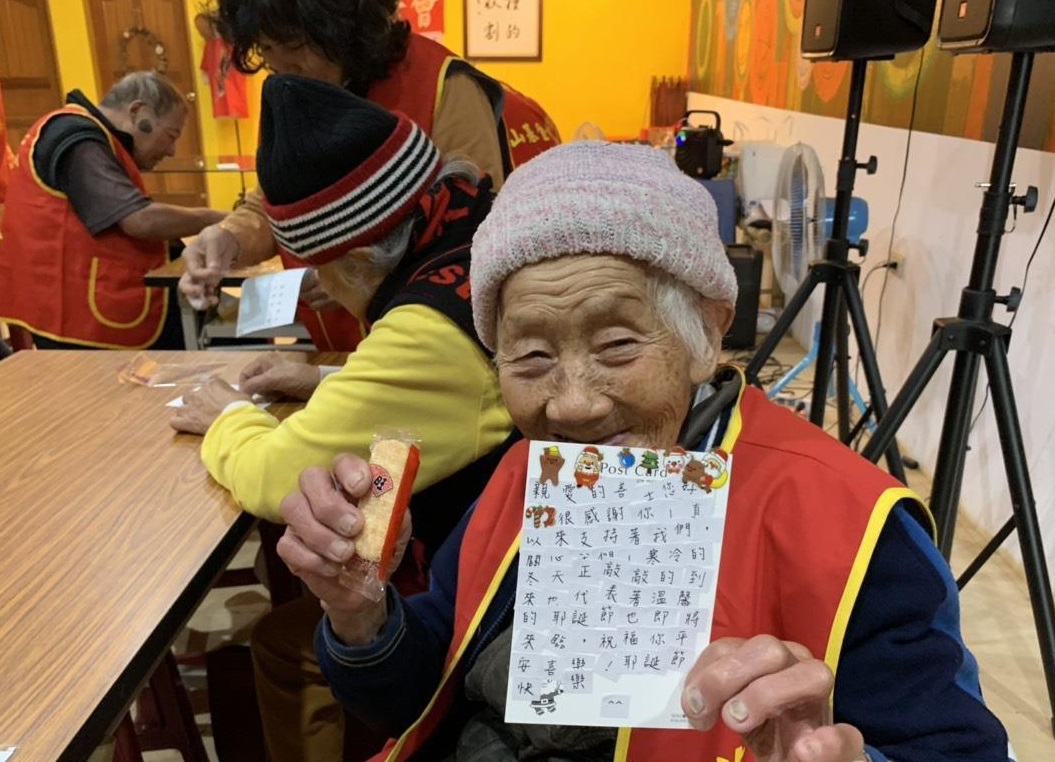 會
的
山基
旺
Post Card
親愛的善士您好
很感謝你一直
以來支持著我們，
關心們，寒冷的
冬天正敲敲的到
來也代表著溫馨
的耶誕節也即將
來臨，祝福你平
安喜樂！耶誕節
快樂
^^